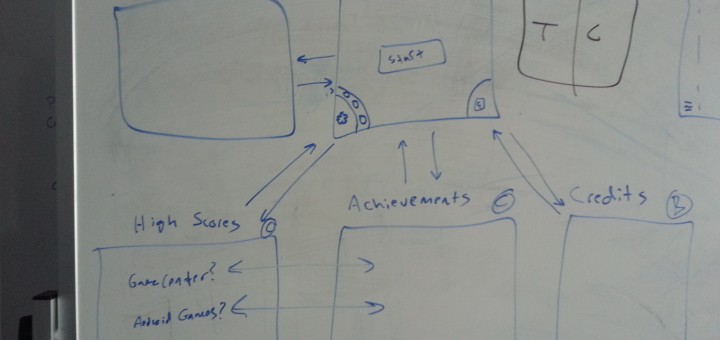 T C
Start
High Scores C
Achievements C
Credits B
Game Center?
Android Games?